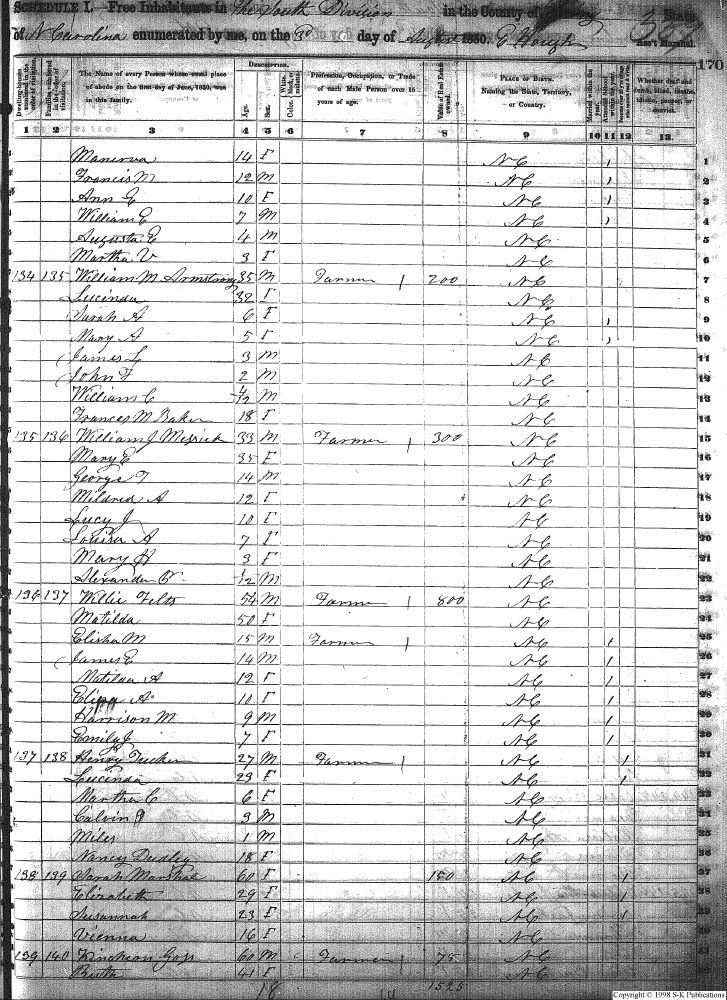 SCHEDULE I.—Free Inhabitants in the South Division in the County of State
of N Carolina enumerated by me, on the 3d day of August 1850. E Hough Ass't Marshal.
170
DESCRIPTION.
The Name of every Person whose usual place of abode on the first day of June, 1850, was in this family.
Age. Sex. Color,
Profession, Occupation, or Trade of each Male Person over 15 years of age.
Value of Real Estate owned.
PLACE OF BIRTH. Naming the State, Territory, or Country.
Whether deaf and dumb, blind, insane, idiotic, pauper, or convict.
1 2 3 4 5 6 7 8 9 10 11 12 13
Manerva 14 F NC / 1
Francis M 12 M NC / 2
Ann E 10 F NC / 3
William E 7 M NC / 4
Augusta E 4 M NC 5
Martha V 3 F NC 6
134 135 William M Armstrong 35 M Farmer / 200 NC 7
Lucinda 32 F NC 8
Sarah A 6 F NC / 9
Mary A 5 F NC / 10
James L 3 M NC 11
John F 2 M NC 12
William C 4/12 M NC 13
Frances M Baker 18 F NC 14
135 136 William J Messick 33 M Farmer / 300 NC 15
Mary E 35 F NC 16
George T 14 M NC 17
Mildred A 12 F NC 18
Lucy J 10 F NC 19
Louisa A 7 F NC 20
Mary H 3 F NC 21
Alexander B 1/12 M NC 22
136 137 Willie Felts 54 M Farmer / 800 NC 23
Matilda 50 F NC 24
Elisha M 15 M Farmer / NC / 25
James E 14 M NC / 26
Matilda A 12 F NC / 27
Eliza A 10 F NC / 28
Harrison M 9 M NC / 29
Emily J 7 F NC / 30
137 138 Henry Tucker 27 M Farmer / NC / 31
Lucinda 23 F NC / 32
Martha C 6 F NC 33
Calvin 3 M NC 34
Miles 1 M NC 35
Nancy Dudley 18 F NC 36
138 139 Sarah Marshal 60 F 150 NC / 37
Elizabeth 29 F NC / 38
Susannah 23 F NC / 39
Vienna 16 F NC 40
139 140 Kinchion Goss 60 M Farmer / 75 NC 41
Ruth 41 F NC
18 14 1525
Copyright © 1998 S-K Publications